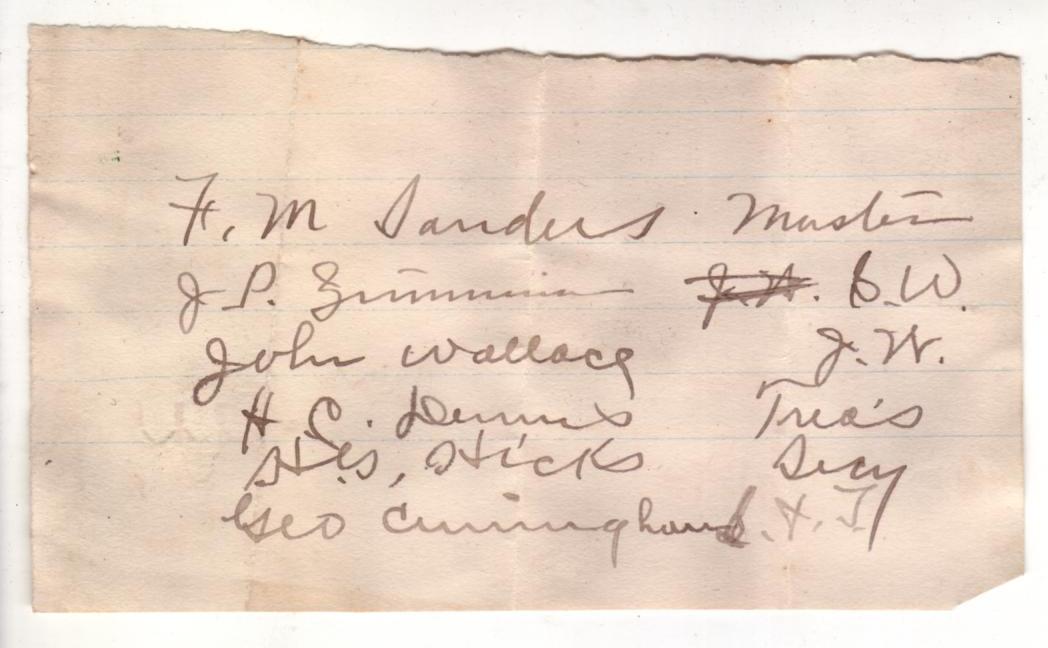 F. M Sanders Master
J P. Zimmerman S.W.
John Wallace J.W.
H C. Dennis Trea's
Hicks Secy
Geo Cunningham T.